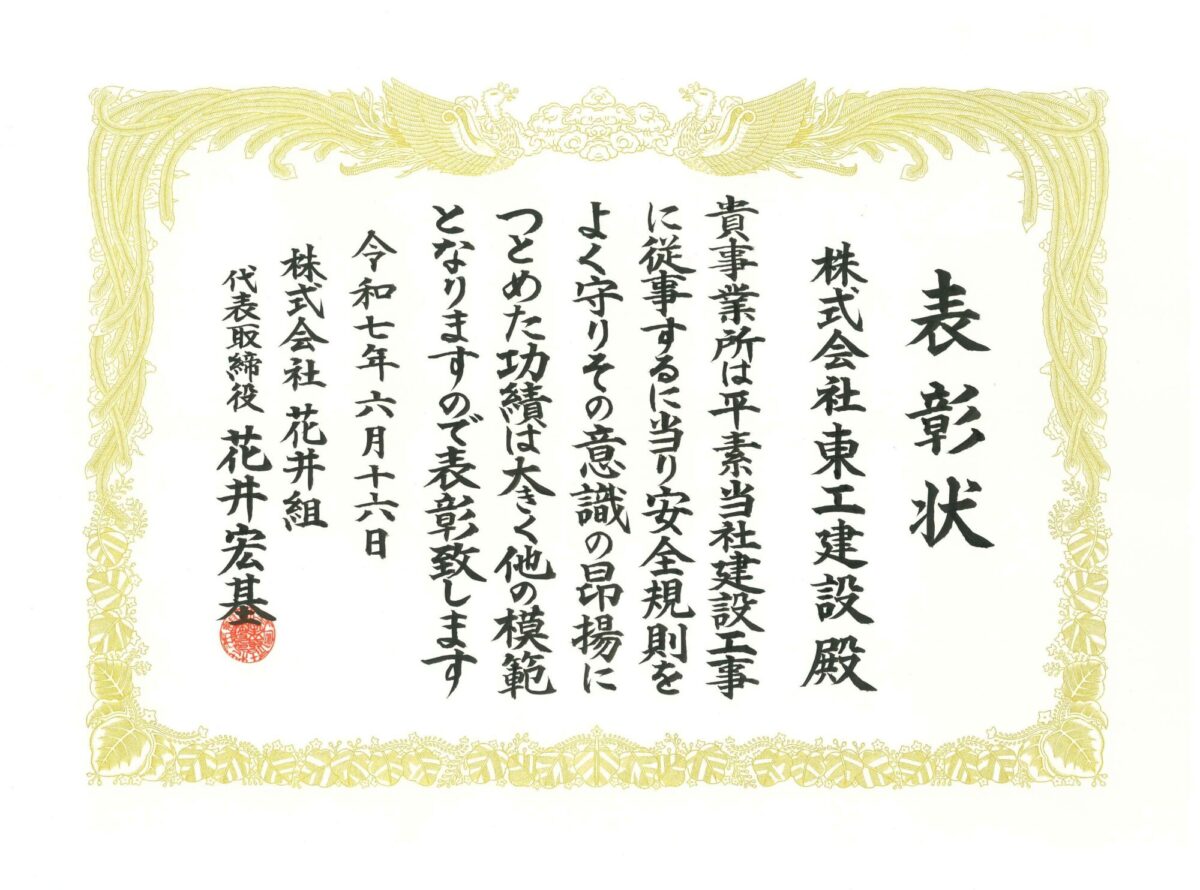 表彰状
株式会社東工建設殿
貴事業所は平素当社建設工事
に従事するに当り安全規則を
よく守りその意識の昂揚に
つとめた功績は大きく他の模範
となりますので表彰致します
令和七年六月十六日
株式会社 花井組
代表取締役 花井宏基